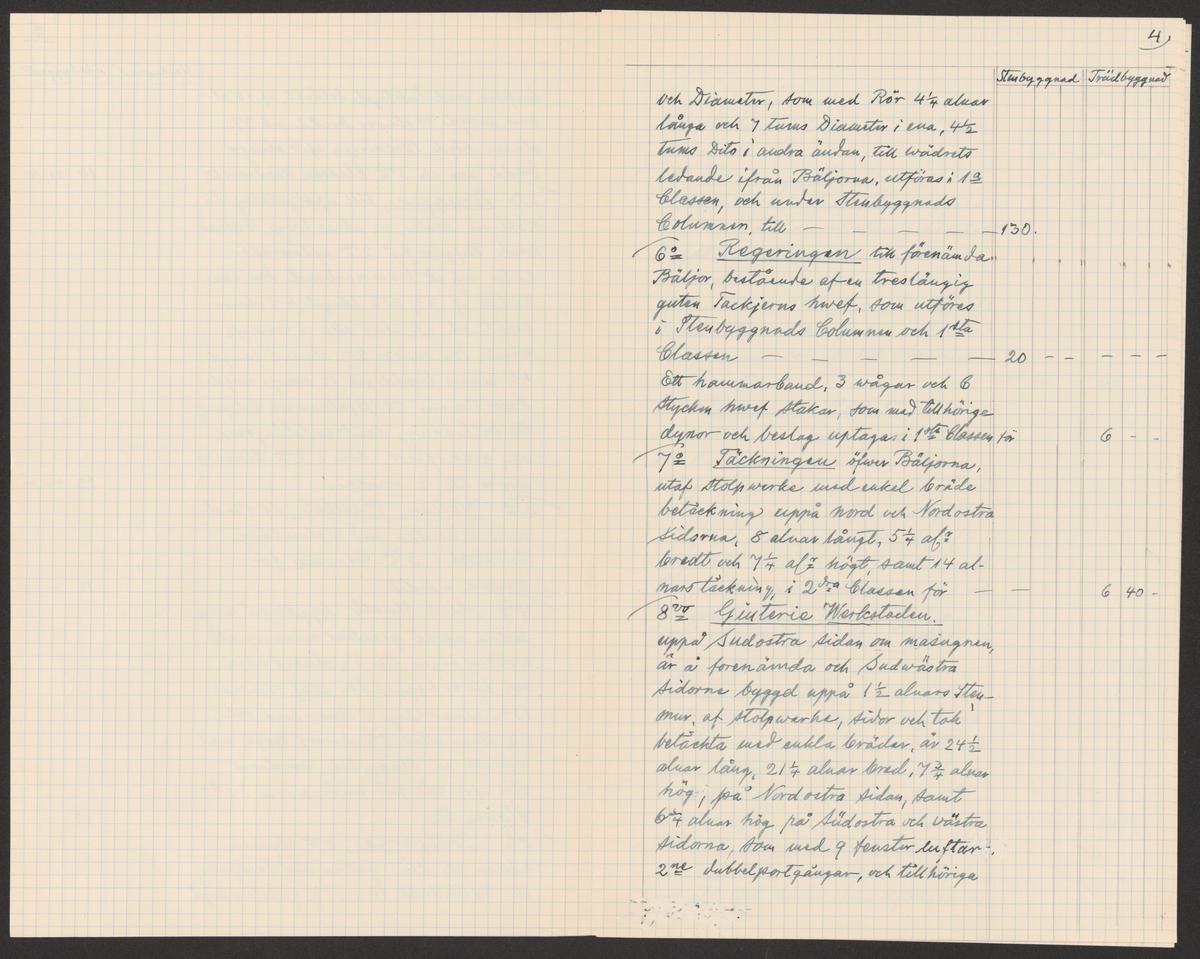 4.
Stenbyggnad Trädbyggnad
och Diameter, som med Rör 4 1/4 alnar
långa och 7 tums Diameter i ena, 4 1/2
tums Dito i andra ändan, till wädrets
ledande ifrån Bäljorna, utföras i 1a
Classen, och under Stenbyggnads
Columnen, till — — — — 130.
6o Regeringen till förenämda
Bäljor, bestående af en treslängig
guten Tackjerns hwef, som utföres
i Stenbyggnads Columnen och 1sta
Classen — — — — — 20 - - - - - -
Ett hammarband, 3 wågar och 6
stycken hwef stakar, som med tillhörige
dynor och beslag uptagas i 1sta Classen för 6 - -
7o Täckningen öfwer Bäljorna,
utaf stolpwerke med enkel bräde
betäckning uppå nord och Nordostra
sidorna, 8 alnar långt, 5 1/4 alr
bredt och 7 1/4 alr högt, samt 14 al-
nars täckning, i 2dra Classen för — — 6 40 -
8vo Giuterie Werkstaden.
uppå Sudostra sidan om masugnen,
är å forenämda och Sudwästra
sidorne byggd uppå 1 1/2 alnars Sten-
mur, af stolpwerke, sidor och tak
betäckta med enkla bräder, är 24 1/2
alnar lång, 21 1/4 alnar bred, 7 3/4 alnar
hög, på Nordostra sidan, samt
6 3/4 alnar hög på Südostra och västra
sidorna, som med 9 fenster luftar,
2ne dubbelportgångar, och tillhöriga